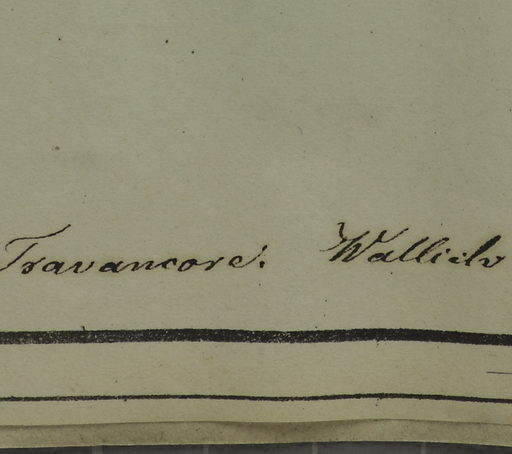 Travancore. Wallich